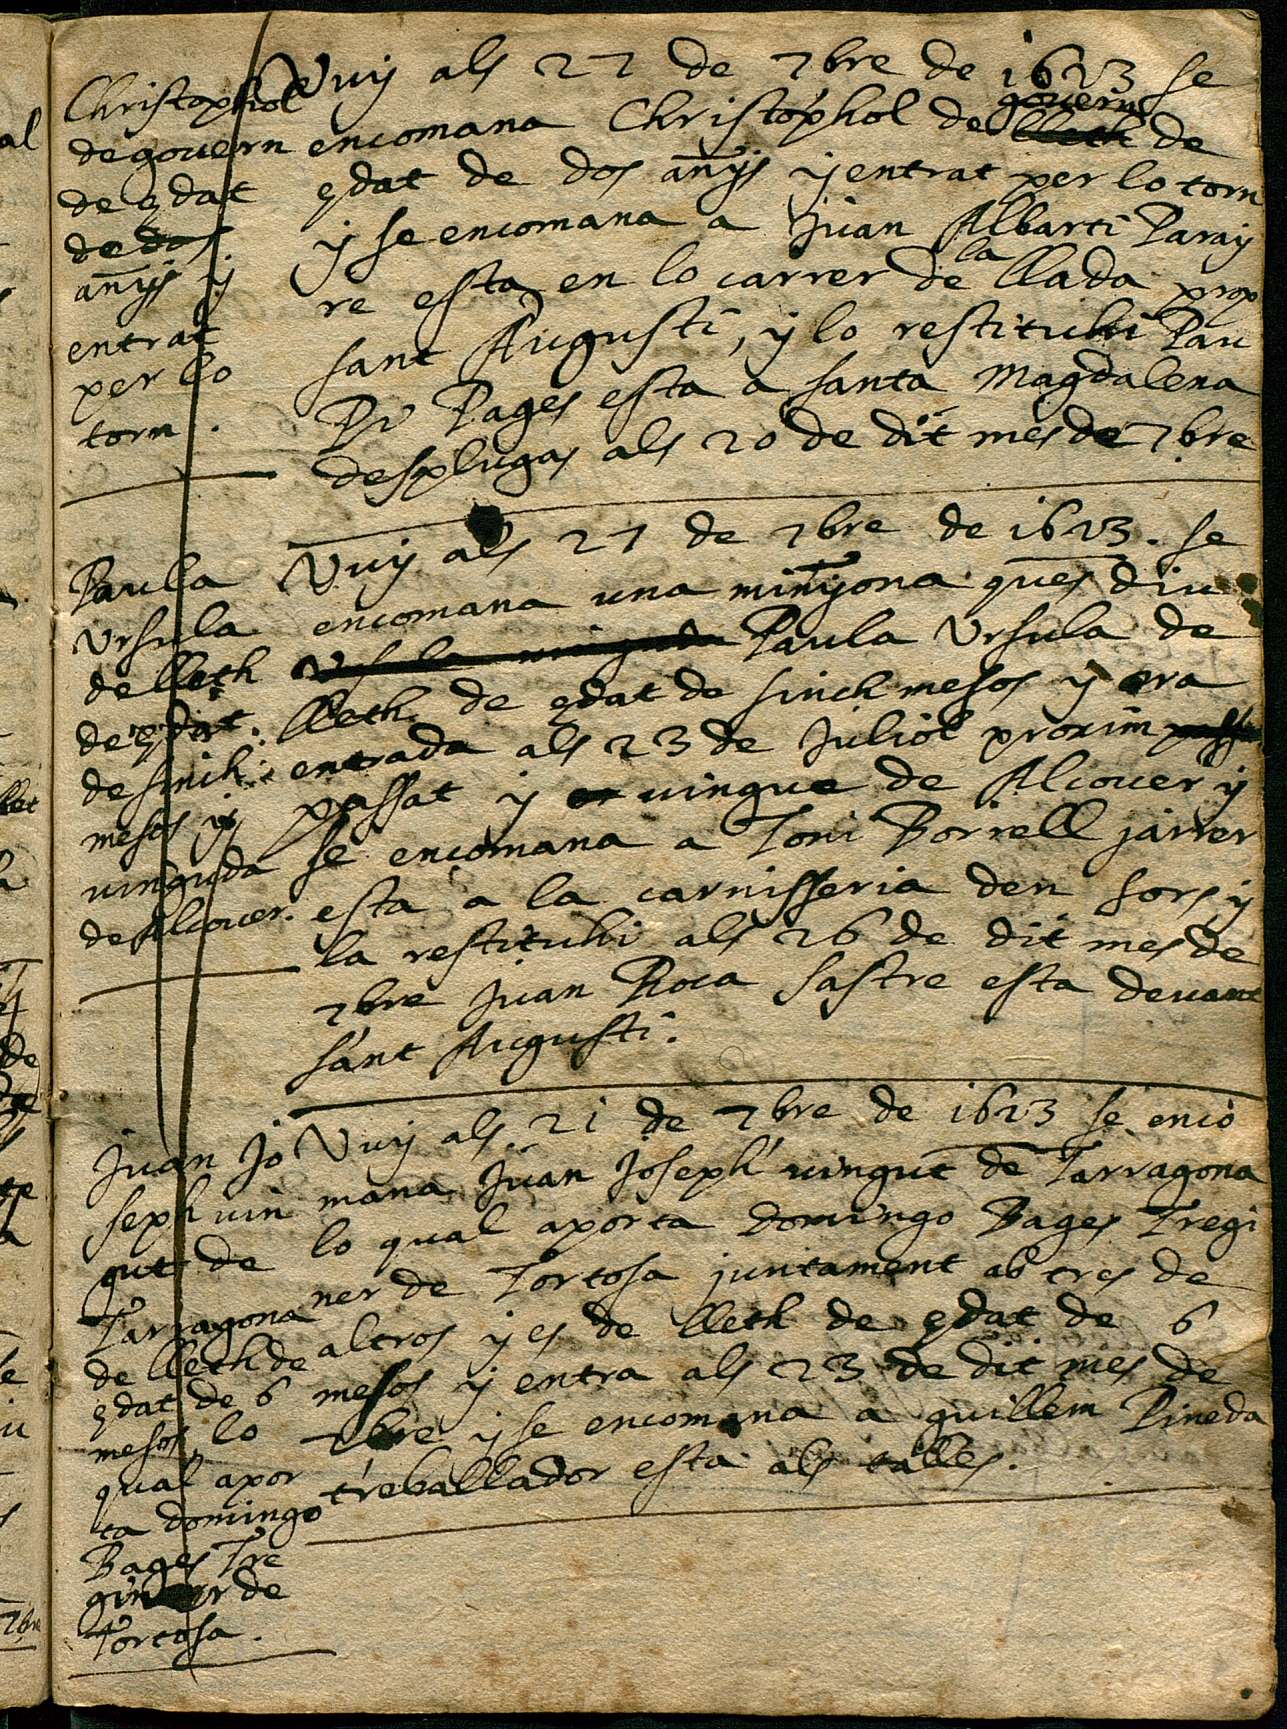 Christophol
de govern
de edat
de dos
anÿs y
entrat
per lo
torn.
Vuÿ als 27 de 7bre de 1623 se
encomana Christophol de govern de
edat de dos anÿs y entrat per lo torn
y se encomana a Juan Albarti Paraÿ
re esta en lo carrer de la llada prop
sant Augusti, y lo restituhi Pau
Pi Pages esta a santa Magdalena
desplugas als 20 de dit mes de 7bre
Paula
Ursula
de lleth
de edat
de sinch
mesos y
vinguda
de Alcover.
Vuÿ als 27 de 7bre de 1623. se
encomana una minÿona ques diu
Paula Ursula de
lleth de edat de sinch mesos y era
entrada als 23 de Juliol proxim
passat y vingue de Alcover y
se encomana a Toni Borrell jarrer
esta a la carnisseria den sors y
la restituhi als 26 de dit mes de
7bre Juan Roca sastre esta devant
sant Augusti.
Juan Jo
seph vin
gut de
Tarragona
de lleth de
edat de 6
mesos lo
qual apor
ta domingo
Bages Tre
giner de
Tortosa.
Vuÿ als 21 de 7bre de 1623 se enco
mana Juan Joseph vingut de Tarragona
lo qual aporta Domingo Bages Tregi
ner de Tortosa juntament ab tres de
altros y es de lleth de edat de 6
mesos y entra als 23 de dit mes de
7bre y se encomana a guillem Pineda
treballador esta als talles.